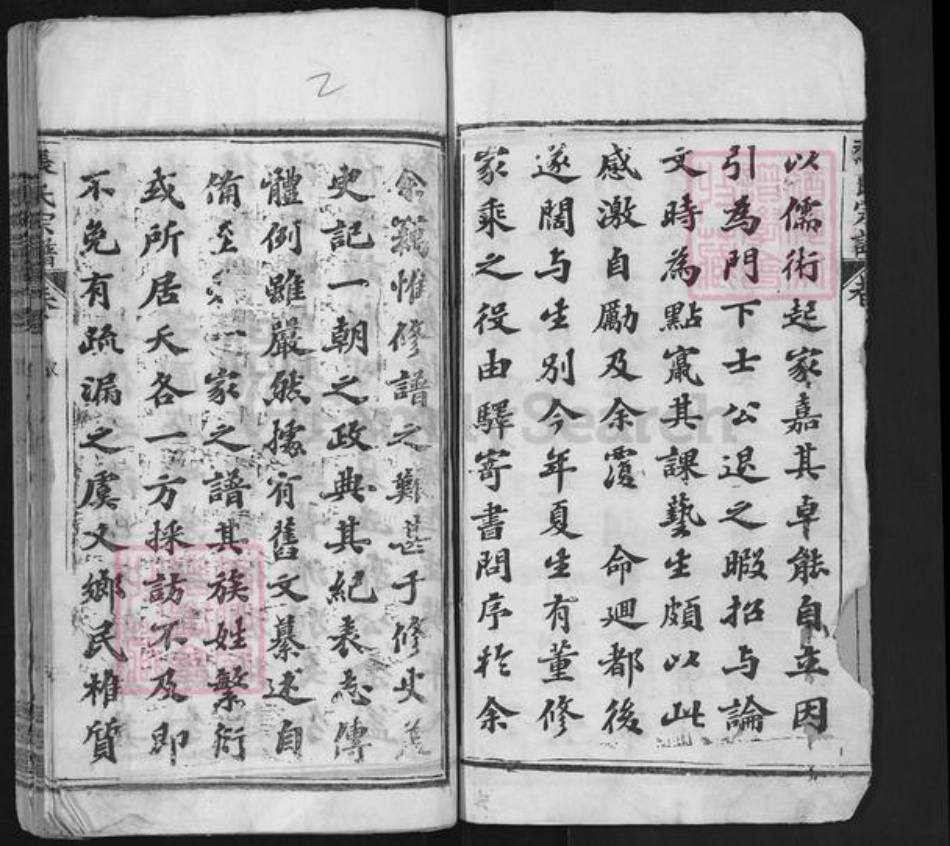 以儒術起家嘉其卓能自立因
引為門下士公退之暇招与論
文時為點竄其課藝生頗以此
感激自勵及余覆 命廻都後
遂闊与生別今年夏生有董修
家乘之役由驛寄書問序於余
余竊惟修譜之難甚于修史
史記一朝之政典其紀表志傳
體例雖嚴然據有舊文纂述自
備至 一家之譜其族姓繁衍
或所居天各一方採訪不及即
不免有疏漏之虞又鄉民椎質
氏宗譜
2
Search